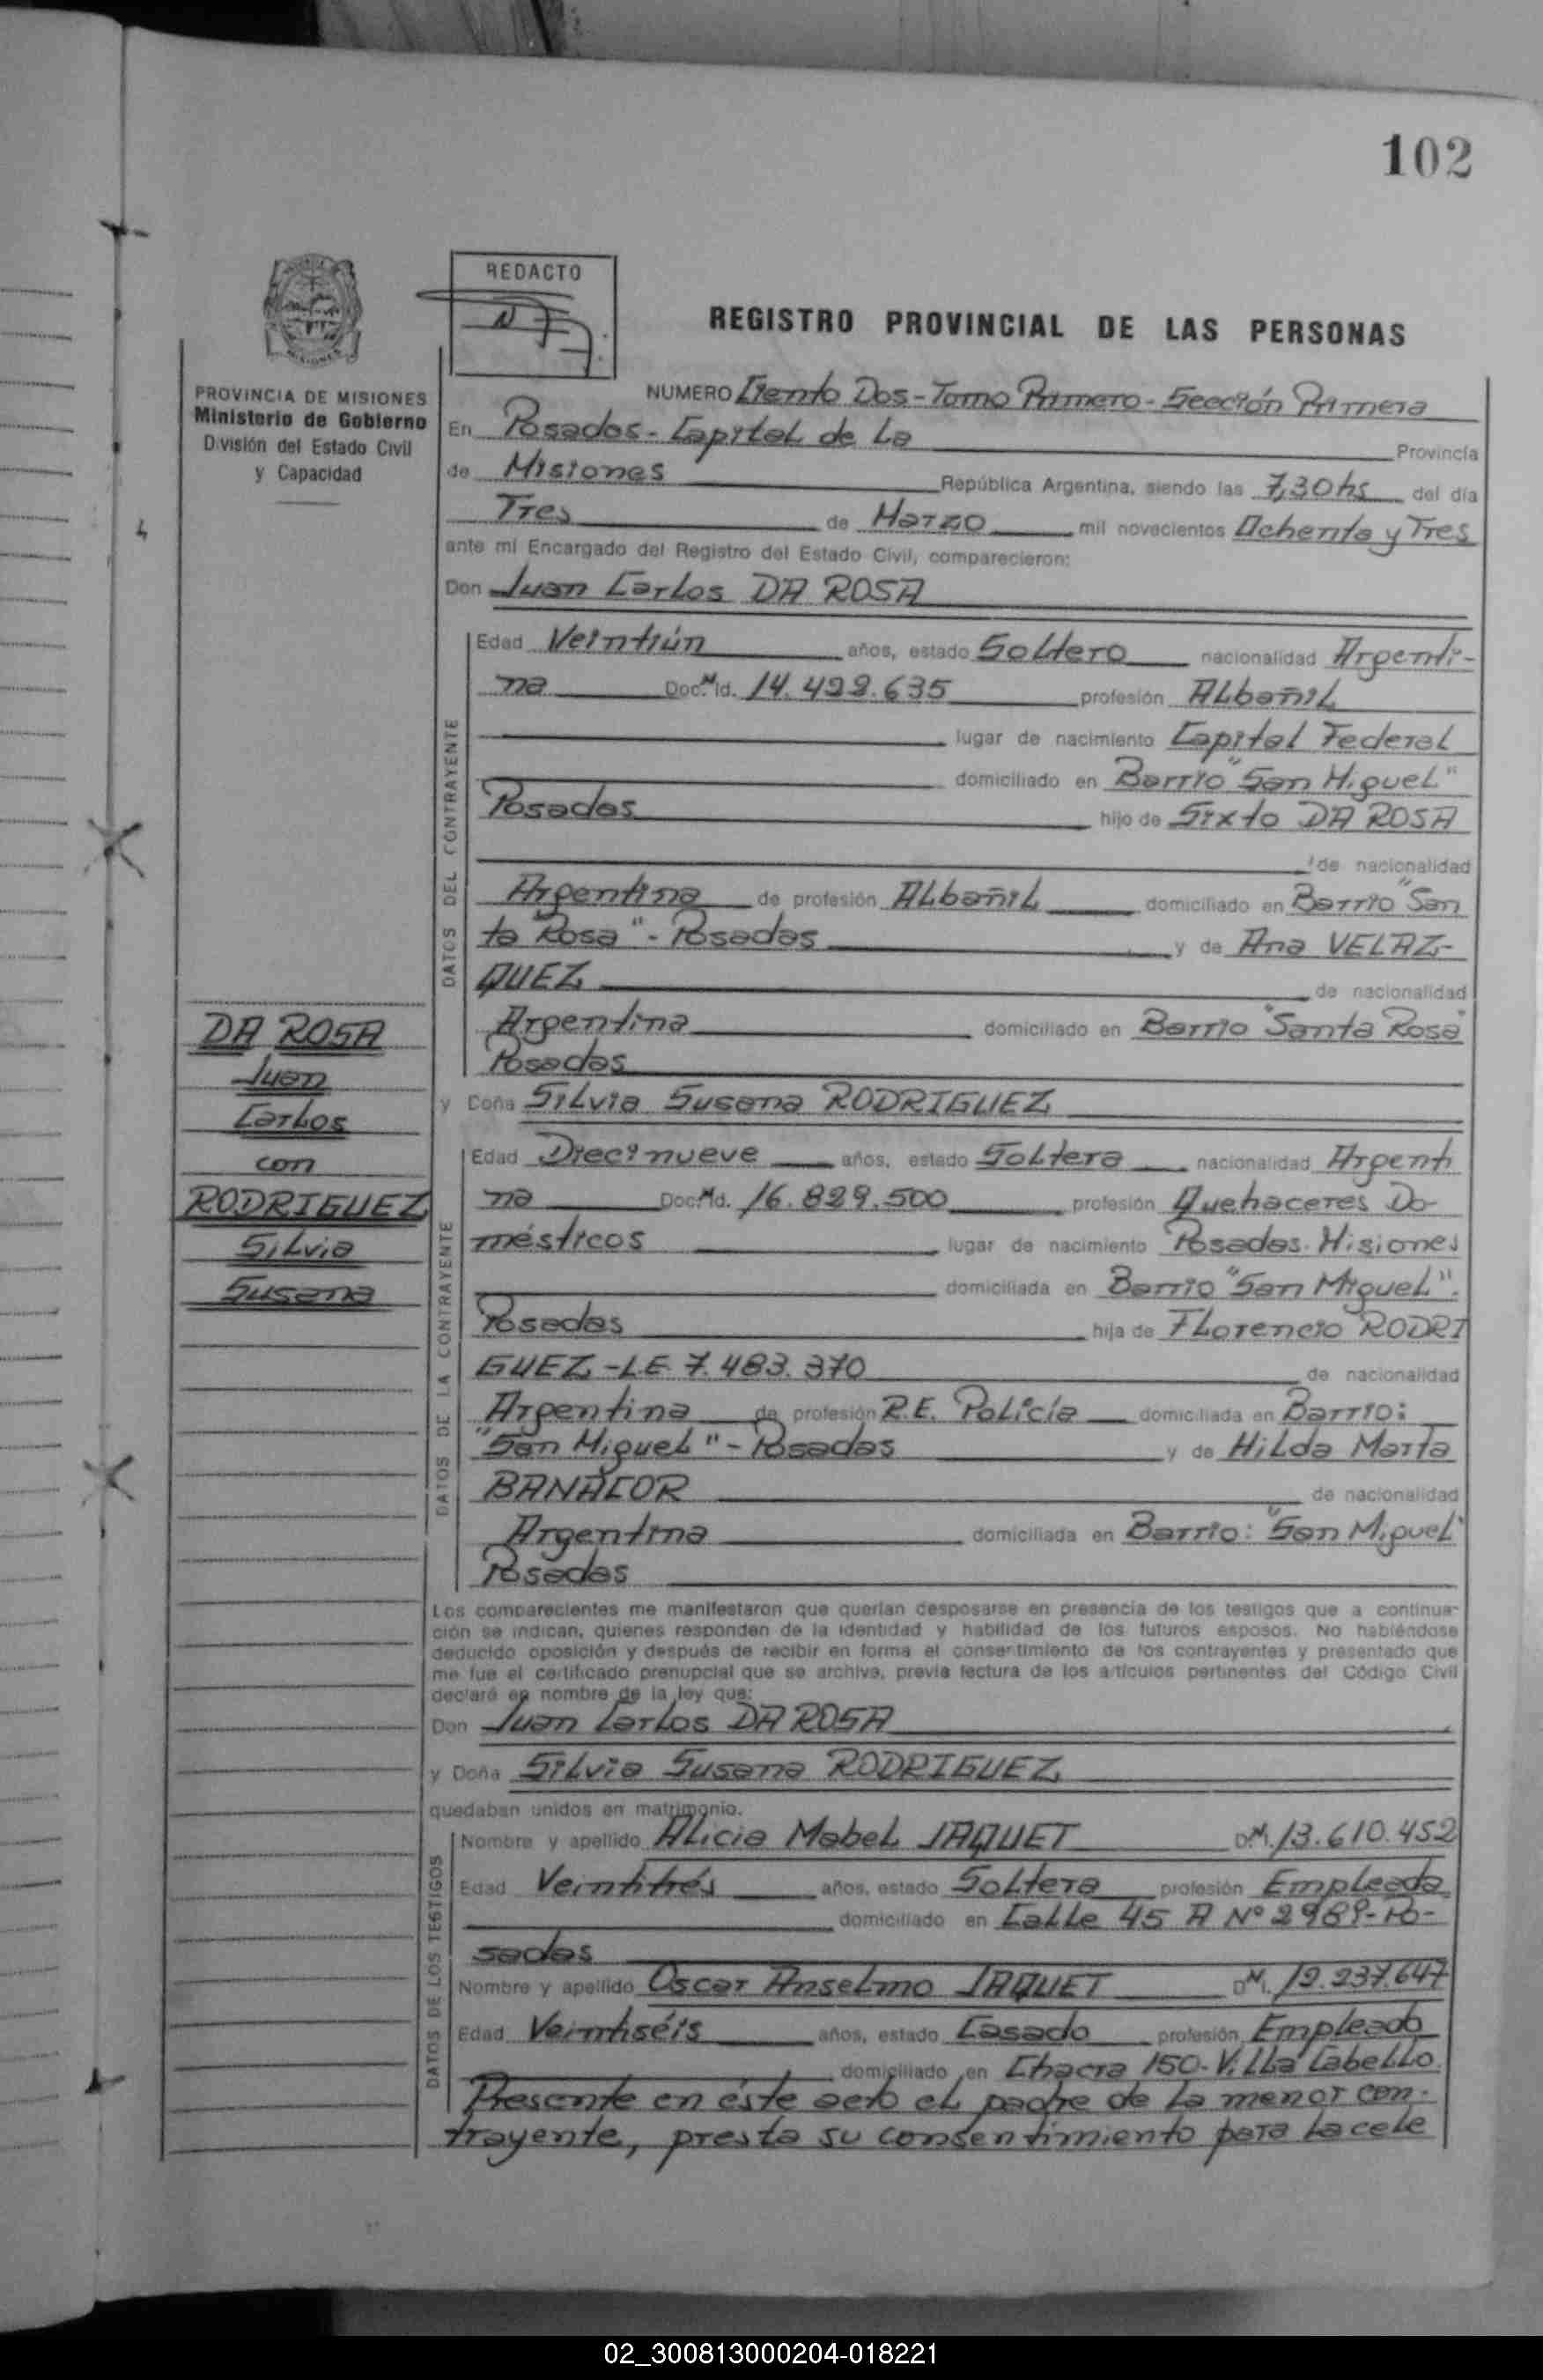 102
REDACTO
REGISTRO PROVINCIAL DE LAS PERSONAS
PROVINCIA DE MISIONES
Ministerio de Gobierno
División del Estado Civil
y Capacidad
NUMERO Ciento Dos - Tomo Primero - Sección Primera
En Posadas - Capital de La Provincia
de Misiones República Argentina, siendo las 7,30 hs del día
Tres de Marzo mil novecientos Ochenta y Tres
ante mi Encargado del Registro del Estado Civil, comparecieron:
Don Juan Carlos DA ROSA
DATOS DEL CONTRAYENTE
Edad Veintiún años, estado Soltero nacionalidad Argenti-
na Doc. Id. 14.429.635 profesión Albañil
lugar de nacimiento Capital Federal
domiciliado en Barrio "San Miguel"
Posadas hijo de Sixto DA ROSA
de nacionalidad
Argentina de profesión Albañil domiciliado en Barrio "San
ta Rosa" - Posadas y de Ana VELAZ-
QUEZ de nacionalidad
Argentina domiciliado en Barrio "Santa Rosa"
Posadas
DA ROSA
Juan
Carlos
con
RODRIGUEZ
Silvia
Susana
y Doña Silvia Susana RODRIGUEZ
DATOS DE LA CONTRAYENTE
Edad Diecinueve años, estado Soltera nacionalidad Argenti
na Doc. Id. 16.829.500 profesión Quehaceres Do-
mésticos lugar de nacimiento Posadas. Misiones
domiciliada en Barrio "San Miguel".
Posadas hija de Florencio RODRI
GUEZ - L.E. 7.483.370 de nacionalidad
Argentina de profesión R.E. Policía domiciliada en Barrio:
"San Miguel" - Posadas y de Hilda Marta
BANACOR de nacionalidad
Argentina domiciliada en Barrio: "San Miguel"
Posadas
Los comparecientes me manifestaron que querían desposarse en presencia de los testigos que a continua-
ción se indican, quienes responden de la identidad y habilidad de los futuros esposos. No habiéndose
deducido oposición y después de recibir en forma el consentimiento de los contrayentes y presentado que
me fue el certificado prenupcial que se archiva, previa lectura de los artículos pertinentes del Código Civil
declaré en nombre de la ley que:
Don Juan Carlos DA ROSA
y Doña Silvia Susana RODRIGUEZ
quedaban unidos en matrimonio.
DATOS DE LOS TESTIGOS
Nombre y apellido Alicia Mabel JAQUET D.M. 13.610.452
Edad Veintitrés años, estado Soltera profesión Empleada
domiciliado en Calle 45 A Nº 2989 - Po-
sadas
Nombre y apellido Oscar Anselmo JAQUET D.M. 12.237.647
Edad Veintiséis años, estado Casado profesión Empleado
domiciliado en Chacra 150 - Villa Cabello
Presente en éste acto el padre de la menor con-
trayente, presta su consentimiento para la cele
02_300813000204-018221